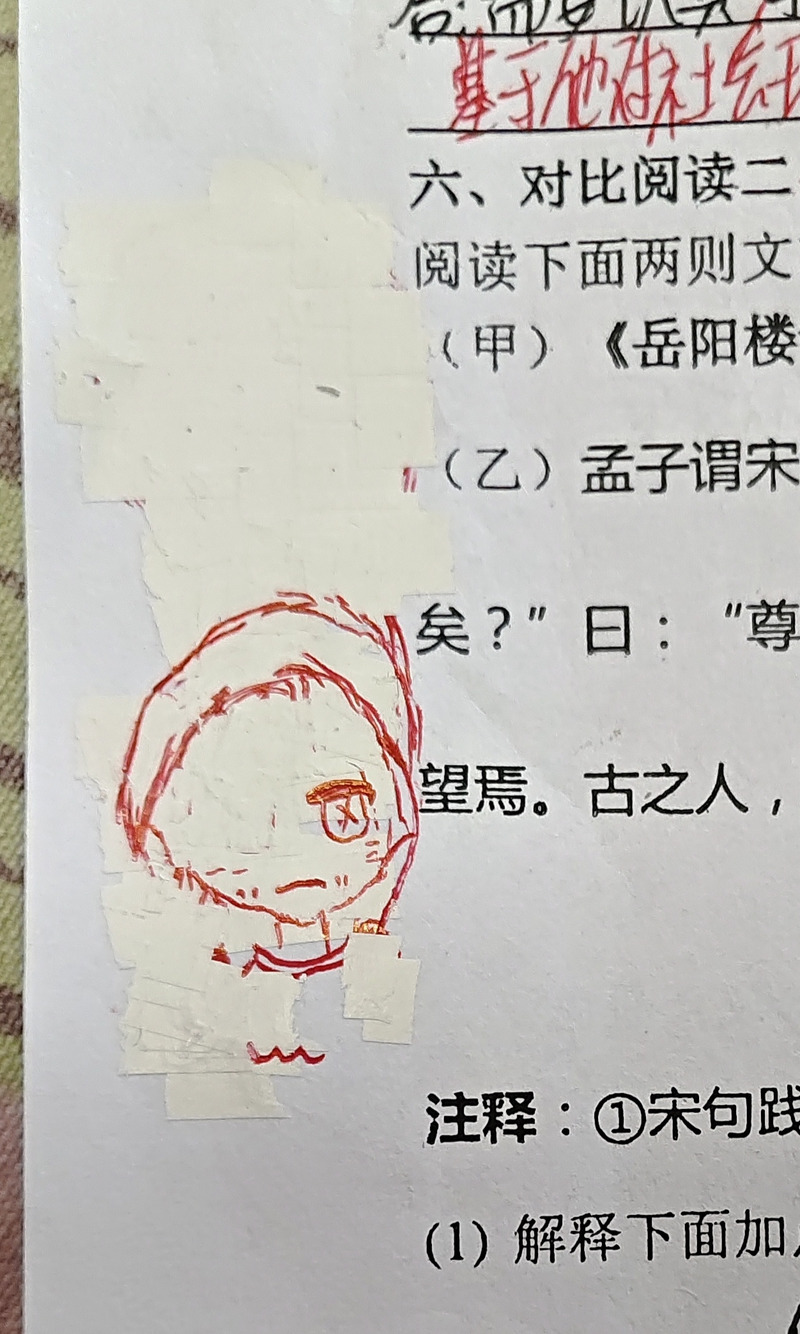 基于他对社会
六、对比阅读二
阅读下面两则文
（甲）《岳阳楼
（乙）孟子谓宋
矣？”曰：“尊
望焉。古之人，
注释：①宋句践
(1) 解释下面加